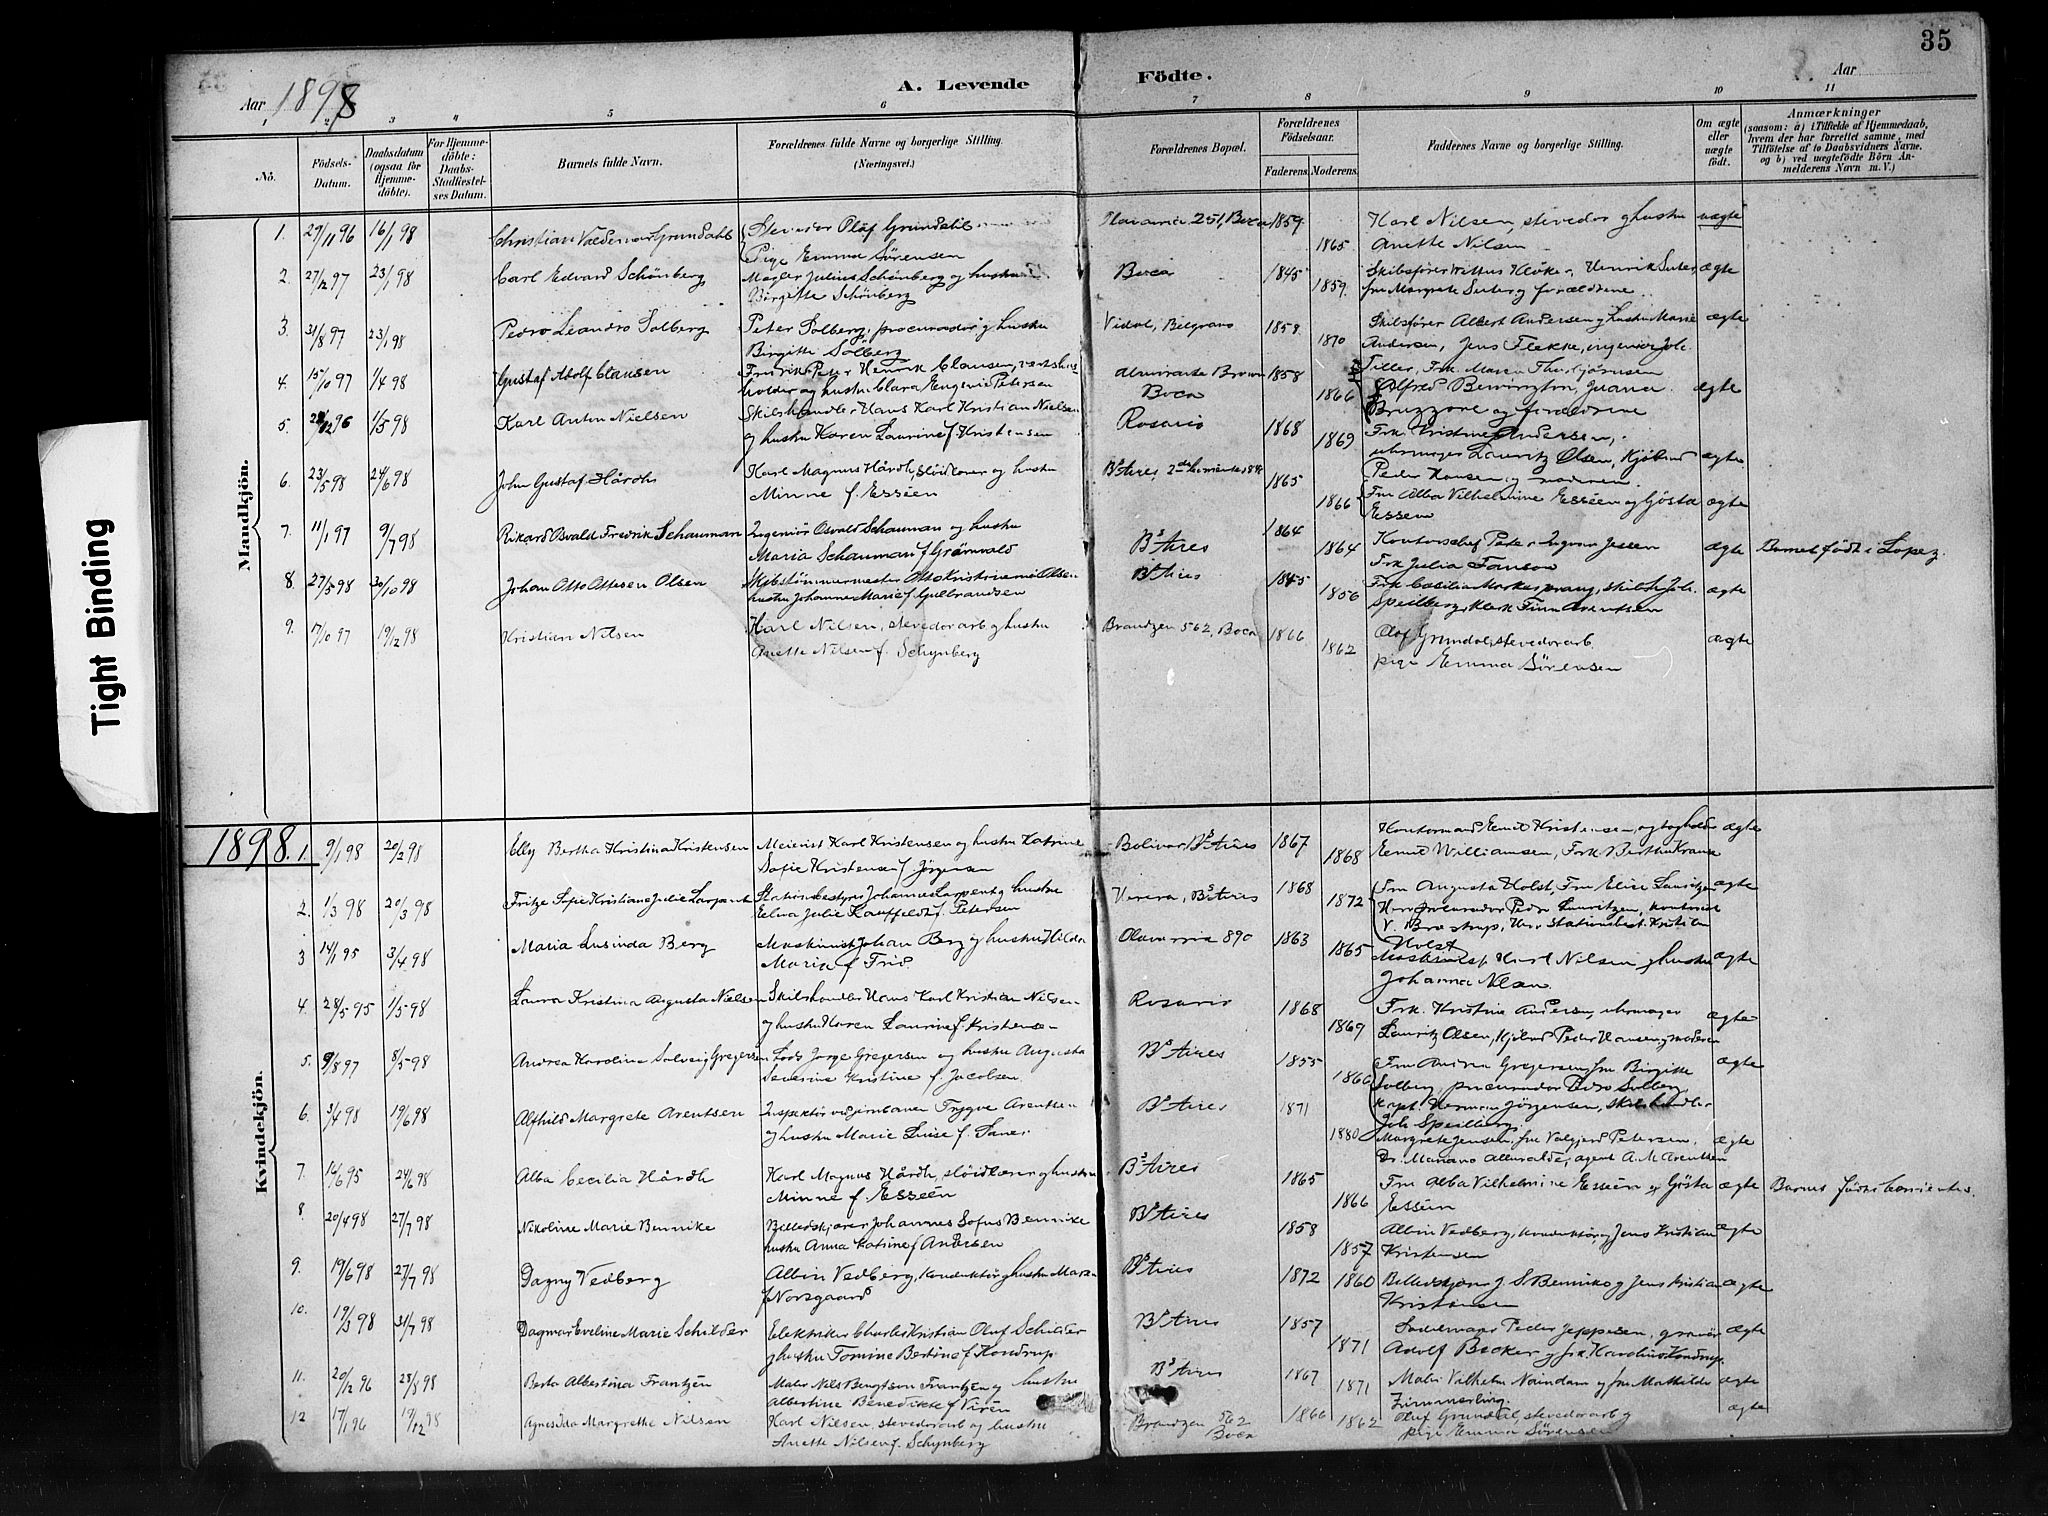 35
Aar 1898
A. Levende Födte.
Aar
1 2 3 4 5 6 7 8 9 10 11
No.
Födsels-Datum.
Daabsdatum (ogsaa for Hjemmedöbte).
For Hjemmedöbte: Daabs-Stadfæstelses Datum.
Barnets fulde Navn.
Forældrenes fulde Navne og borgerlige Stilling. (Næringsvei.)
Forældrenes Bopæl.
Forældrenes Födselsaar.
Faderens. Moderens.
Faddernes Navne og borgerlige Stilling.
Om ægte eller uægte födt.
Anmærkninger
(saasom: a) i Tilfælde af Hjemmedaab, hvem der har forrettet samme, med Tilföielse af to Daabsvidners Navne, og b) ved uægtefödte Börn Anmelderens Navn m. V.)
Tight Binding
Mandkjön.
1. 29/11 96 16/1 98 Christian Valdemar Grundahl Stevedor Olaf Grundahl 251, Boca 1859 Karl Nilsen, stevedor g hustru uægte
Pige Emma Sörensen 1865 Anette Nilsen
2. 27/12 97 23/1 98 Carl Edvard Schönberg Mægler Julius Schönberg og hustru Boca 1845 Skibsförer ægte
Birgitte Schönberg 1859. fru Margrete Suter og forældrene
3. 31/8 97 23/1 98 Pedro Leandro Solberg Peter Solberg, procurador g hustru Vidal, Belgrano 1858 Skibsförer Albert Andersen g hustru Marie ægte
Birgitte Solberg 1870 Andersen, Jens Flekke, ingeniör Joh.
4. 15/10 97 1/4 98 Gustaf Adolf Clausen Fredrik Peter Henrik Clausen, vertshus Almirante Brown 1858 Tiller, Frk. Maria Thorbjörnsen
holder og hustru Clara Engevid Petersen Boca 1866 Alfred ægte
5. 28/12 96 1/5 98 Karl Anton Nielsen Skibshandler Hans Karl Kristian Nielsen Rosario 1868 Bruzzone og forældrene
g hustru Karen Laurine f. Kristensen 1869 Frk. Kristine Andersen,
uhrmager Lauritz Olsen, Kjöbmd ægte
6. 23/5 98 24/6 98 John Gustaf Hårdh Karl Magnus Hårdh, slöidlærer og hustru Bs Aires, 1865 Peder Hansen og moderen
Minne f. Esséen 1866 Fru Alba Vilhelmine Esséen og Gösta ægte
Esséen
7. 11/1 97 9/7 98 Rikard Osvald Fredrik Schauman Ingeniör Osvald Schauman og hustru Bs Aires 1864 Kontorschef Peter Ingvar Jessen ægte Barnet födt i Lopez.
Maria Schauman f. Grönvald 1864 Frk Julia
8. 27/5 98 30/10 98 Johan Otto Ottesen Olsen Skibstömmermester Otto Kristian Olsen Bs Aires 1845 Frk Cæcilia skibsh Joh.
hustru Johanne Marie f. Gulbrandsen 1856 Speilberg, Klerk Finn Arentsen ægte
9. 17/10 97 19/12 98 Kristian Nilsen Karl Nilsen, stevedorarb g hustru Brandzen 562, Boca 1866 Olaf Grundal, stevedorarb ægte
Anette Nilsen f. Schynberg 1862 pige Emma Sörensen
1898.
Kvindekjön.
1. 9/1 98 20/2 98 Elly Bertha Kristina Kristensen Meierist Karl Kristensen og hustru Katrine Bolivar, Bs Aires 1867 Kontormand Emil Kristensen, og bogholder ægte
Sofie Kristensen f. Jörgensen 1868 Emil Williamsen, Frk. Bertha Krause
2. 1/3 98 20/3 98 Fritze Sofie Kristiane Julie Larpent Stationsbestyrer Johannes Larpent g hustru Bs Aires 1868 Fru Augusta Holst, Fru Elise Lauritzen ægte
Elina Julie Kauffeldt f. Petersen 1872 Herr procurador Pedro Lauritzen, kontorist
V. Brostrup, Herr Stationsbest. Kristian
3 14/1 95 3/4 98 Maria Lusinda Berg Maskinist Johan Berg g hustru Hilda Olavarria 890 1863 Holst
Maria f. Frid. 1865 Maskinist Karl Nilsen g hustru ægte
Johanna Nlsen
4. 28/5 95 1/5 98 Laura Kristina Augusta Nielsen Skibshandler Hans Karl Kristian Nilsen Rosario 1868 Frk. Kristine Andersen, uhrmager ægte
g hustru Karen Laurine f. Kristensen 1869 Lauritz Olsen, Kjöbmd Peder Hansen, g moderen
5. 9/8 97 8/5 98 Andrea Karoline Solveig Gregersen Lods Jorge Gregersen og hustru Augusta Bs Aires 1855 Fru Andrea Gregersen, fru Birgitte ægte
Severine Kristine f. Jacobsen 1866 Solberg, procurador Pedro Solberg
6. 3/4 98 19/6 98 Alfhild Margrete Arentsen Inspektör ved jernbanen Trygve Arentsen Bs Aires 1871 Kapt. Herman Jörgensen, skibshandler
g hustru Marie Luise f. 1880 Joh Speilberg.
Margrete Jensen, fru Valgjerd Petersen, ægte
7. 14/6 95 24/6 98 Alba Cecilia Hårdh Karl Magnus Hårdh, slöidlærer g hustru Bs Aires 1865 Dr. Mariano agent A. M. Arentsen
Minne f. Esséen 1866 Fru Alba Vilhelmine Esséen og Gösta ægte Barnet födt i Corrientes.
Esséen
8. 20/4 98 27/7 98 Nikoline Marie Bennike Billedskjærer Johannes Sofus Bennike Bs Aires 1858 Albin Vedberg, konduktör, g Jens Kristian ægte
hustru Anna Katrine f. Andersen 1857 Kristensen
9. 19/6 98 27/7 98 Dagny Vedberg Albin Vedberg, Konduktör g hustru Maren Bs Aires 1872 1860 Billedskjærer J. S. Bennike g Jens Kristian ægte
f. Norsgaard Kristensen
10. 19/3 98 31/7 98 Dagmar Eveline Marie Schilder Elektriker Charles Kristian Oluf Schilder Bs Aires 1857 Sadelmager Peder Jeppesen, gravör ægte
g hustru Tomine Bertine f. Kondrup 1871 Adolf Becker g frk. Karoline Kondrup.
11. 20/12 96 28/8 98 Berta Albertina Frantzén Maler Nils Bengtson Frantzén og hustru Bs Aires 1867 Maler Vilhelm Naindam og fru Mathilde ægte
Albertine Benedikte f. Virén 1871 Zimmerling
12 17/1 96 19/12 98 Agnes Ida Margrethe Nilsen Karl Nilsen, stevedorarb og hustru Brandzen 562 1866 1862 Oluf Grundal, stevedorarb g ægte
Anette Nilsen f. Schynberg Boca pige Emma Sörensen